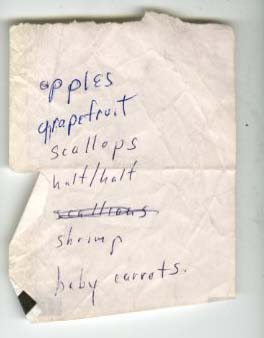 apples
grapefruit
scallops
half/half
scallions
shrimp
baby carrots.